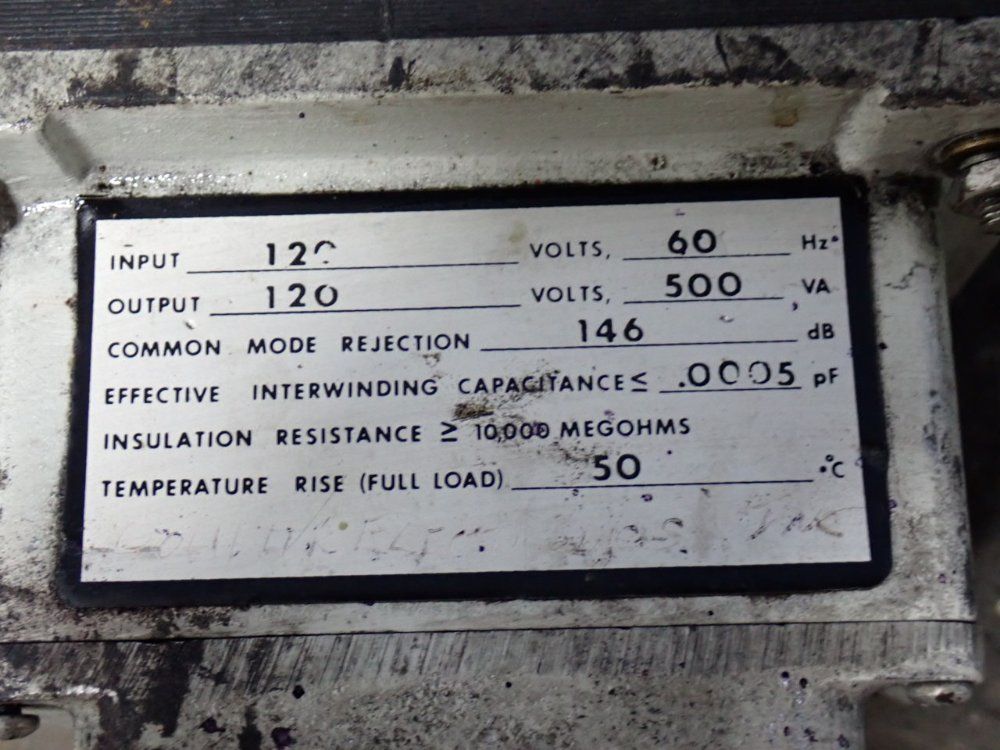 INPUT 120 VOLTS, 60 Hz.
OUTPUT 120 VOLTS, 500 VA
COMMON MODE REJECTION 146 dB
EFFECTIVE INTERWINDING CAPACITANCE ≤ .0005 pF
INSULATION RESISTANCE ≥ 10,000 MEGOHMS
TEMPERATURE RISE (FULL LOAD) 50 °C